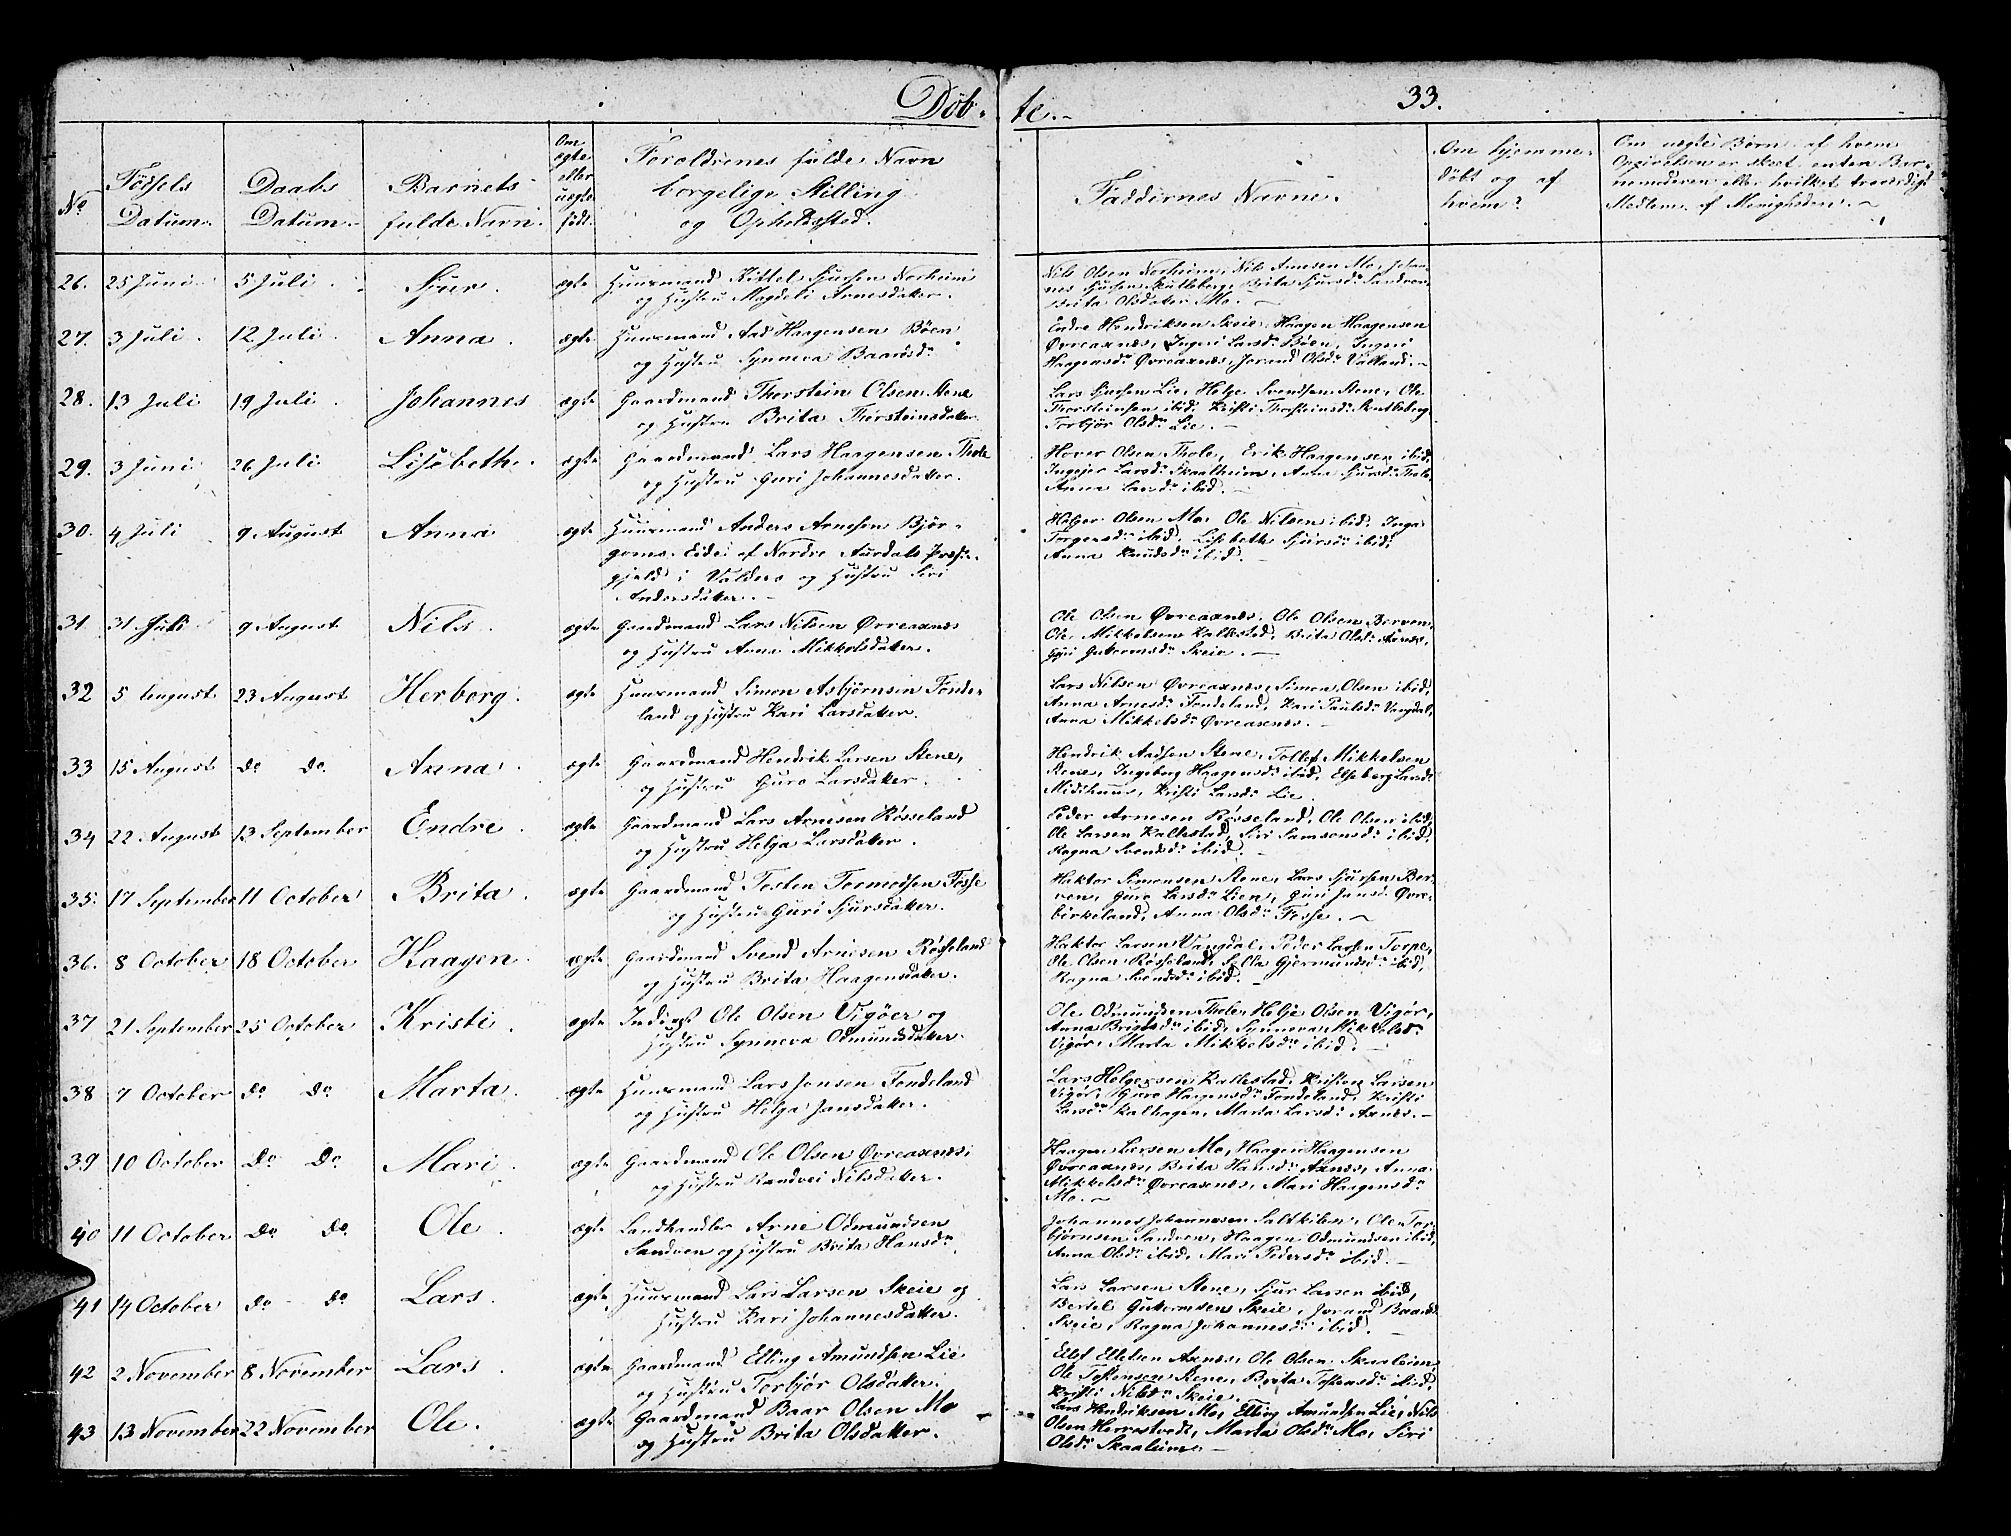 Døb-
te.-
33.
No
Fødsels Datum.
Daabs Datum.
Barnets fulde Navn.
Om ægte eller uægte født.
Forældrenes fulde Navn
borgelige Stilling
og Opholdssted.
Faddernes Navne.
Om hjemme-
døbt og af
hvem?
Om uægte Børn, af hvem
Opgivelsen er skeet, enten Bar-
nemoderen eller hvilket troværdigt
Medlem af Menigheden.
26. 25 Juni 5 Juli Sjur. ægte Huusmand Kittel Sjursen Norheim
og Hustru Magdeli Arnesdatter.
Nils Olsen Norheim, Nils Arnesen Mo, Johan-
nes Sjursen Skutleberg, Brita Sjursd: Sandven,
Brita Olsdatter Mo.
27. 3 Juli 12 Juli Anna ægte Huusmand Aad Haagensen Bøen
og Hustru Synneva Baardsd:
Endre Hendriksen Skeie, Haagen Haagensen
Øvreaxnes, Ingeri Larsd: Bøen, Ingeri
Haagensd: Øvreaxnes, Jorand Olsd: Valland.
28. 13 Juli 19 Juli Johannes ægte Gaardmand Thorstein Olsen Stene
og Hustru Brita Thorsteinsdatter
Lars Sjursen Lie, Helge Svendsen Stene, Ole
Thorsteinsen ibid, Kristi Thorsteinsd: Skutleberg,
Torbjør Olsd: Lie.
29. 3 Juni 26 Juli Lisebeth. ægte Gaardmand Lars Haagensen Thole
og Hustru Guri Johannesdatter.
Hover Olsen Thole, Erik Haagensen ibid,
Ingejer Larsd: Skaalheim, Anna Sjursd: Thole,
Anna Larsd: ibid.
30. 4 Juli 9 August Anna ægte Huusmand Anders Arnesen Bjør-
goms Eide af Nordre Aurdals Præste-
gjeld i Valders og Hustru Siri
Andersdatter.
Holger Olsen Mo, Ole Nilsen ibid, Inga
Torgersd: ibid, Lisebeth Sjursd: ibid,
Anna Knudsd: ibid.
31 31 Juli 9 August Nils. ægte Gaardmand Lars Nilsen Øvreaxnes
og Hustru Anna Mikkelsdatter.
Ole Olsen Øvreaxnes, Ole Olsen Berven,
Ole Mikkelsen Kallestad, Brita Olsd: Axnes,
Guri Guttormsd: Skeie.
32 5 August 23 August Herborg. ægte Huusmand Simon Asbjørnsen Fonde-
land og Hustru Kari Larsdatter.
Lars Nilsen Øvreaxnes, Simon Olsen ibid,
Anna Arnesd: Fondeland, Kari Paulsd: Vangdal,
Anna Mikkelsd: Øvreaxnes.
33 15 August do do. Anna. ægte Gaardmand Hendrik Larsen Stene,
og Hustru Guro Larsdatter.
Hendrik Aadsen Stene, Tollef Mikkelsen
Stene, Ingeborg Haagensd: ibid, Elseberg Larsd:
Midthuns, Kristi Larsd: Lie
34 22 August 13 September Endre. ægte Gaardmand Lars Arnesen Røsseland
og Hustru Helga Larsdatter.
Peder Arnesen Røsseland, Ole Olsen ibid,
Ole Larsen Kallestad, Siri Samsonsd: ibid,
Ragna Svendsd: ibid.
35. 17 September 11 October Brita. ægte Gaardmand Tosten Tormodsen Fosse
og Hustru Guri Sjursdatter.
Haktor Simonsen Stene, Lars Sjursen Ber-
ven, Guro Larsd: Lien, Guri Jansd: Øvre-
birkeland, Anna Olsd: Fosse.
36. 8 October 18 October Haagen. ægte Gaardmand Svend Arnesen Røsseland
og Hustru Brita Haagensdatter.
Haktor Larsen Vangdal, Peder Larsen Torpe,
Ole Olsen Røsseland, Gjermundsd: ibid,
Ragna Svendsd: ibid.
37 21 September 25 October Kristi. ægte Inderst Ole Olsen Vigøer og
Hustru Synneva Odmundsdatter.
Ole Odmundsen Thole, Helje Olsen Vigør,
Anna ibid, Synneva Mikkelsd:
Vigør, Marta Mikkelsd: ibid.
38 7 October do do Marta. ægte Huusmand Lars Jonsen Fondeland
og Hustru Helga Jansdatter.
Lars Helgesen Kallestad, Kristen Larsen
Vigør, Haagensd: Fondeland, Kristi
Larsd: Kalhagen, Marta Larsd: Axnes.
39 10 October Do Do Mari. ægte Gaardmand Ole Olsen Øvreaxnes,
og Hustru Randvei Nilsdatter.
Haagen Larsen Mo, Haagen Haagensen
Øvreaxnes, Brita Hansd: Axnes, Anna
Mikkelsd: Øvreaxnes, Mari Haagensd:
Mo.
40 11 October Do do Ole. ægte Landhandler Arne Odmundsen
Sandven og Hustru Brita Hansd:
Johannes Johannesen Saltkilen, Ole Tor-
bjørnsen Sandven, Haagen Odmundsen ibid,
Anna Olsd: ibid, Mari Pedersd: ibid.
41 14 October do do Lars. ægte Huusmand Lars Larsen Skeie og
Hustru Kari Johannesdatter.
Lars Larsen Stene, Sjur Larsen ibid,
Bertel Guttormsen Skeie, Jorand Baardsd:
Skeie, Ragna Johannesd: ibid.
42 2 November 8 November Lars. ægte Gaardmand Elling Amundsen Lie
og Hustru Torbjør Olsdatter.
Ellef Ellefsen Axnes, Ole Olsen Skaaleim,
Ole Tostensen Stene, Brita Tostensd: ibid,
Kristi Nilsd: Skeie.
43 13 November 22 November Ole. ægte Gaardmand Baar Olsen Mo
og Hustru Brita Olsdatter.
Lars Hendriksen Mo, Elling Amundsen Lie, Nils
Olsen Herrestvedt, Marta Olsd: Mo, Siri
Olsd: Skaaleim.